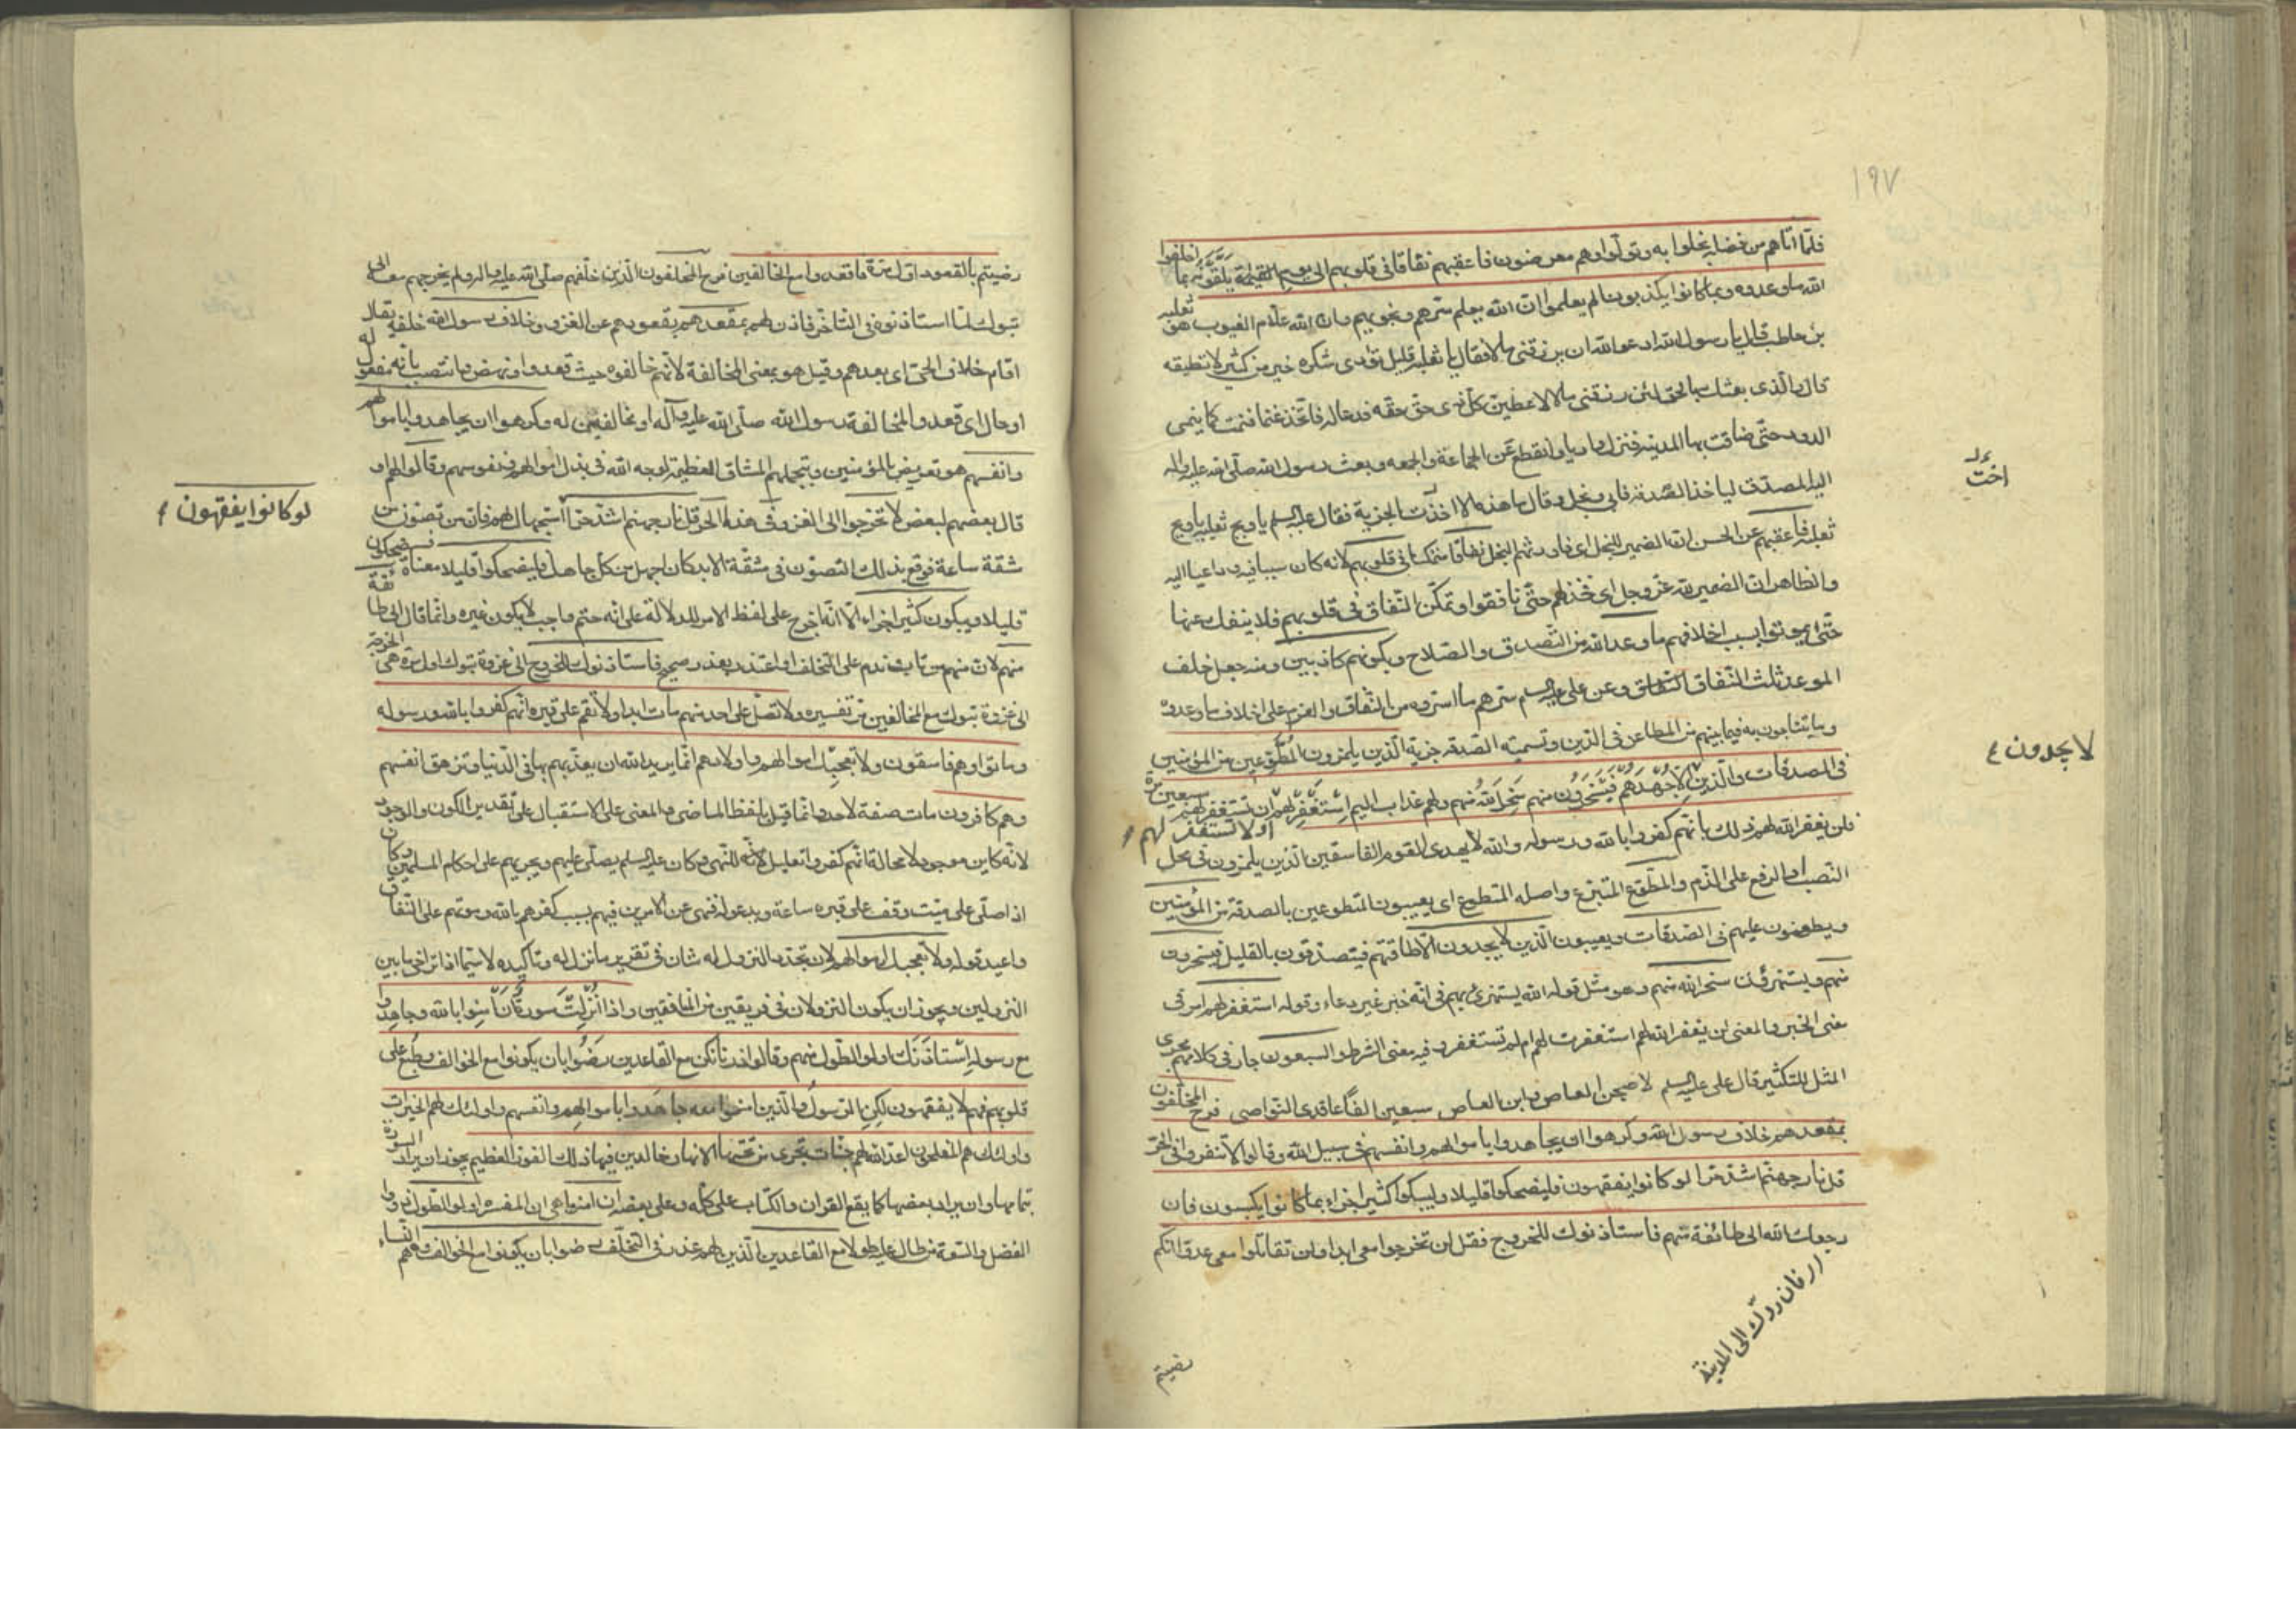 ١٩٧
فلما اتاهم من فضله بخلوا به وتولوا وهم معرضون فاعقبهم نفاقا في قلوبهم الى يوم القيمة يلقونه بما اخلفوا
الله ما وعدوه وبما كانوا يكذبون الم يعلموا ان الله يعلم سرهم ونجويهم وان الله علام الغيوب هو ثعلبه
بن حاطب قال يا رسول الله ادعوا الله ان يرزقني مالا فقال يا ثعلبه قليل تؤدى شكره خير من كثير لا تطيقه
قال والذي بعثك بالحق لئن رزقني مالا لاعطين كل ذي حق حقه فدعا له فاتخذ غنما فنمت كما ينمى
الدود حتى ضاقت بها المدينه فنزل واديا وانقطع عن الجماعة والجمعه وبعث رسول الله صلى الله عليه واله
اليه المصدق لياخذ الصدقه فابى وبخل وقال ما هذه الا اخت الجزية فقال عليه السلم يا ويح ثعلبه يا ويح
ثعلبه فاعقبهم عن الحسن ان الضمير للبخل اى فاورثهم البخل نفاقا متمكنا في قلوبهم لانه كان سببا فيه وداعيا اليه
والظاهر ان الضمير لله عز وجل اى فخذلهم حتى نافقوا وتمكن النفاق في قلوبهم فلا ينفك عنها
حتى يموتوا بسبب اخلافهم ما وعد الله من التصدق والصلاح وبكونهم كاذبين ومنه جعل خلف
الموعد ثلث النفاق وعن علي عليه السلم سرهم ما اسروه من النفاق والعزم على اخلاف ما وعدوه
وما يتناجون به فيما بينهم من المطاعن في الدين وتسمية الصدقه جزية الذين يلمزون المطوعين من المؤمنين
في الصدقات والذين لا جهدهم فيسخرون منهم سخر الله منهم ولهم عذاب اليم استغفر لهم ان تستغفر لهم سبعين مرة
او لا تستغفر لهم
فلن يغفر الله لهم ذلك بانهم كفروا بالله ورسوله والله لا يهدى القوم الفاسقين الذين يلمزون في محل
النصب او الرفع على الذم والمطوع المتبرع واصله المتطوع اى يعيبون المتطوعين بالصدقة من المؤمنين
ويطعنون عليهم في الصدقات ويعيبون الذين لا يجدون الا طاقتهم فيتصدقون بالقليل فيسخرون
منهم ويستهزؤن سخر الله منهم وهو مثل قوله الله يستهزئ بهم في انه خبر غير دعاء وقوله استغفر لهم امر في
معنى الخبر والمعنى لن يغفر الله لهم استغفرت لهم ام لم تستغفر وفيه معنى الشرط والسبعون جار في كلامهم مجرى
المثل للتكثير قال علي عليه السلم لاصبحن العاص وابن العاص سبعين الفا عاقدى النواصى فرح المخلفون
بمقعدهم خلاف رسول الله وكرهوا ان يجاهدوا باموالهم وانفسهم في سبيل الله وقالوا لا تنفروا في الحر
قل نار جهنم اشد حرا لو كانوا يفقهون فليضحكوا قليلا وليبكوا كثيرا جزاء بما كانوا يكسبون فان
رجعك الله الى طائفة منهم فاستاذنوك للخروج فقل لن تخرجوا معى ابدا ولن تقاتلوا معى عدوا انكم
فان ردك الى المدينة
رضيتم
اخت
لا يجدون
رضيتم بالقعود اول مرة فاقعدوا مع الخالفين فرح المخلفون الذين خلفهم صلى الله عليه واله ولم يخرجهم معه الى
تبوك لما استاذنوه في التاخر فاذن لهم بمقعدهم بقعودهم عن الغزو وخلاف رسول الله خلفه يقال
اقام خلاف الحي اى بعدهم وقيل هو بمعنى المخالفة لانهم خالفوه حيث قعدوا ونهض وانتصب بانه مفعول له
او حال اى قعدوا لمخالفة رسول الله صلى الله عليه وآله او مخالفين له وكرهوا ان يجاهدوا باموالهم
وانفسهم هو تعريض بالمؤمنين وبتحملهم المشاق العظيمة لوجه الله في بذل اموالهم ونفوسهم وقالوا لهم او
قال بعضهم لبعض لا تخرجوا الى الغزو في هذه الحر قل نار جهنم اشد حرا استجهال لهم فان من تصون من
مشقة ساعة فوقع بذلك التصون في مشقة الابد كان اجهل من كل جاهل فليضحكوا قليلا معناه فسيضحكون
قليلا ويبكون كثيرا جزاء الا انه اخرج على لفظ الامر للدلالة على انه حتم واجب لا يكون غيره وانما قال الى طائفة
منهم لان منهم من تاب وندم على التخلف او اعتذر بعذر صحيح فاستاذنوك للخروج الى غزوة تبوك اول مرة هى الخرجة
الى غزوة تبوك مع الخالفين مر تفسيره ولا تصل على احد منهم مات ابدا ولا تقم على قبره انهم كفروا بالله ورسوله
وماتوا وهم فاسقون ولا تعجبك اموالهم واولادهم انما يريد الله ان يعذبهم بها في الدنيا وتزهق انفسهم
وهم كافرون مات صفة لاحد وانما قيل بلفظ الماضى والمعنى على الاستقبال على تقدير الكون والوجود
لانه كاين موجود لا محالة انهم كفروا تعليل للنهى وكان عليه السلم يصلى عليهم ويجريهم على احكام المسلمين وكان
اذا صلى على ميت وقف على قبره ساعة ويدعو له فنهى عن الامرين فيهم بسبب كفرهم بالله وموتهم على النفاق
واعيد قوله ولا تعجبك اموالهم لان تجدد النزول له شان في تقرير ما نزل له وتاكيده لا سيما اذا تراخى ما بين
النزولين ويجوز ان يكون النزولان في فريقين من المنافقين واذا انزلت سورة ان آمنوا بالله وجاهدوا
مع رسوله استاذنك اولو الطول منهم وقالوا ذرنا نكن مع القاعدين رضوا بان يكونوا مع الخوالف وطبع على
قلوبهم فهم لا يفقهون لكن الرسول والذين امنوا معه جاهدوا باموالهم وانفسهم واولئك لهم الخيرات
واولئك هم المفلحون اعد الله لهم جنات تجرى من تحتها الانهار خالدين فيها ذلك الفوز العظيم يجوز ان يراد السورة
بتمامها وان يراد بعضها كما يقع القران والكتاب على كله وعلى بعضه ان امنوا هى ان المفسره اولو الطول ذووا
الفضل والسعة من طال عليه طولا مع القاعدين الذين لهم عذر في التخلف رضوا بان يكونوا مع الخوالف وهم النساء
لو كانوا يفقهون